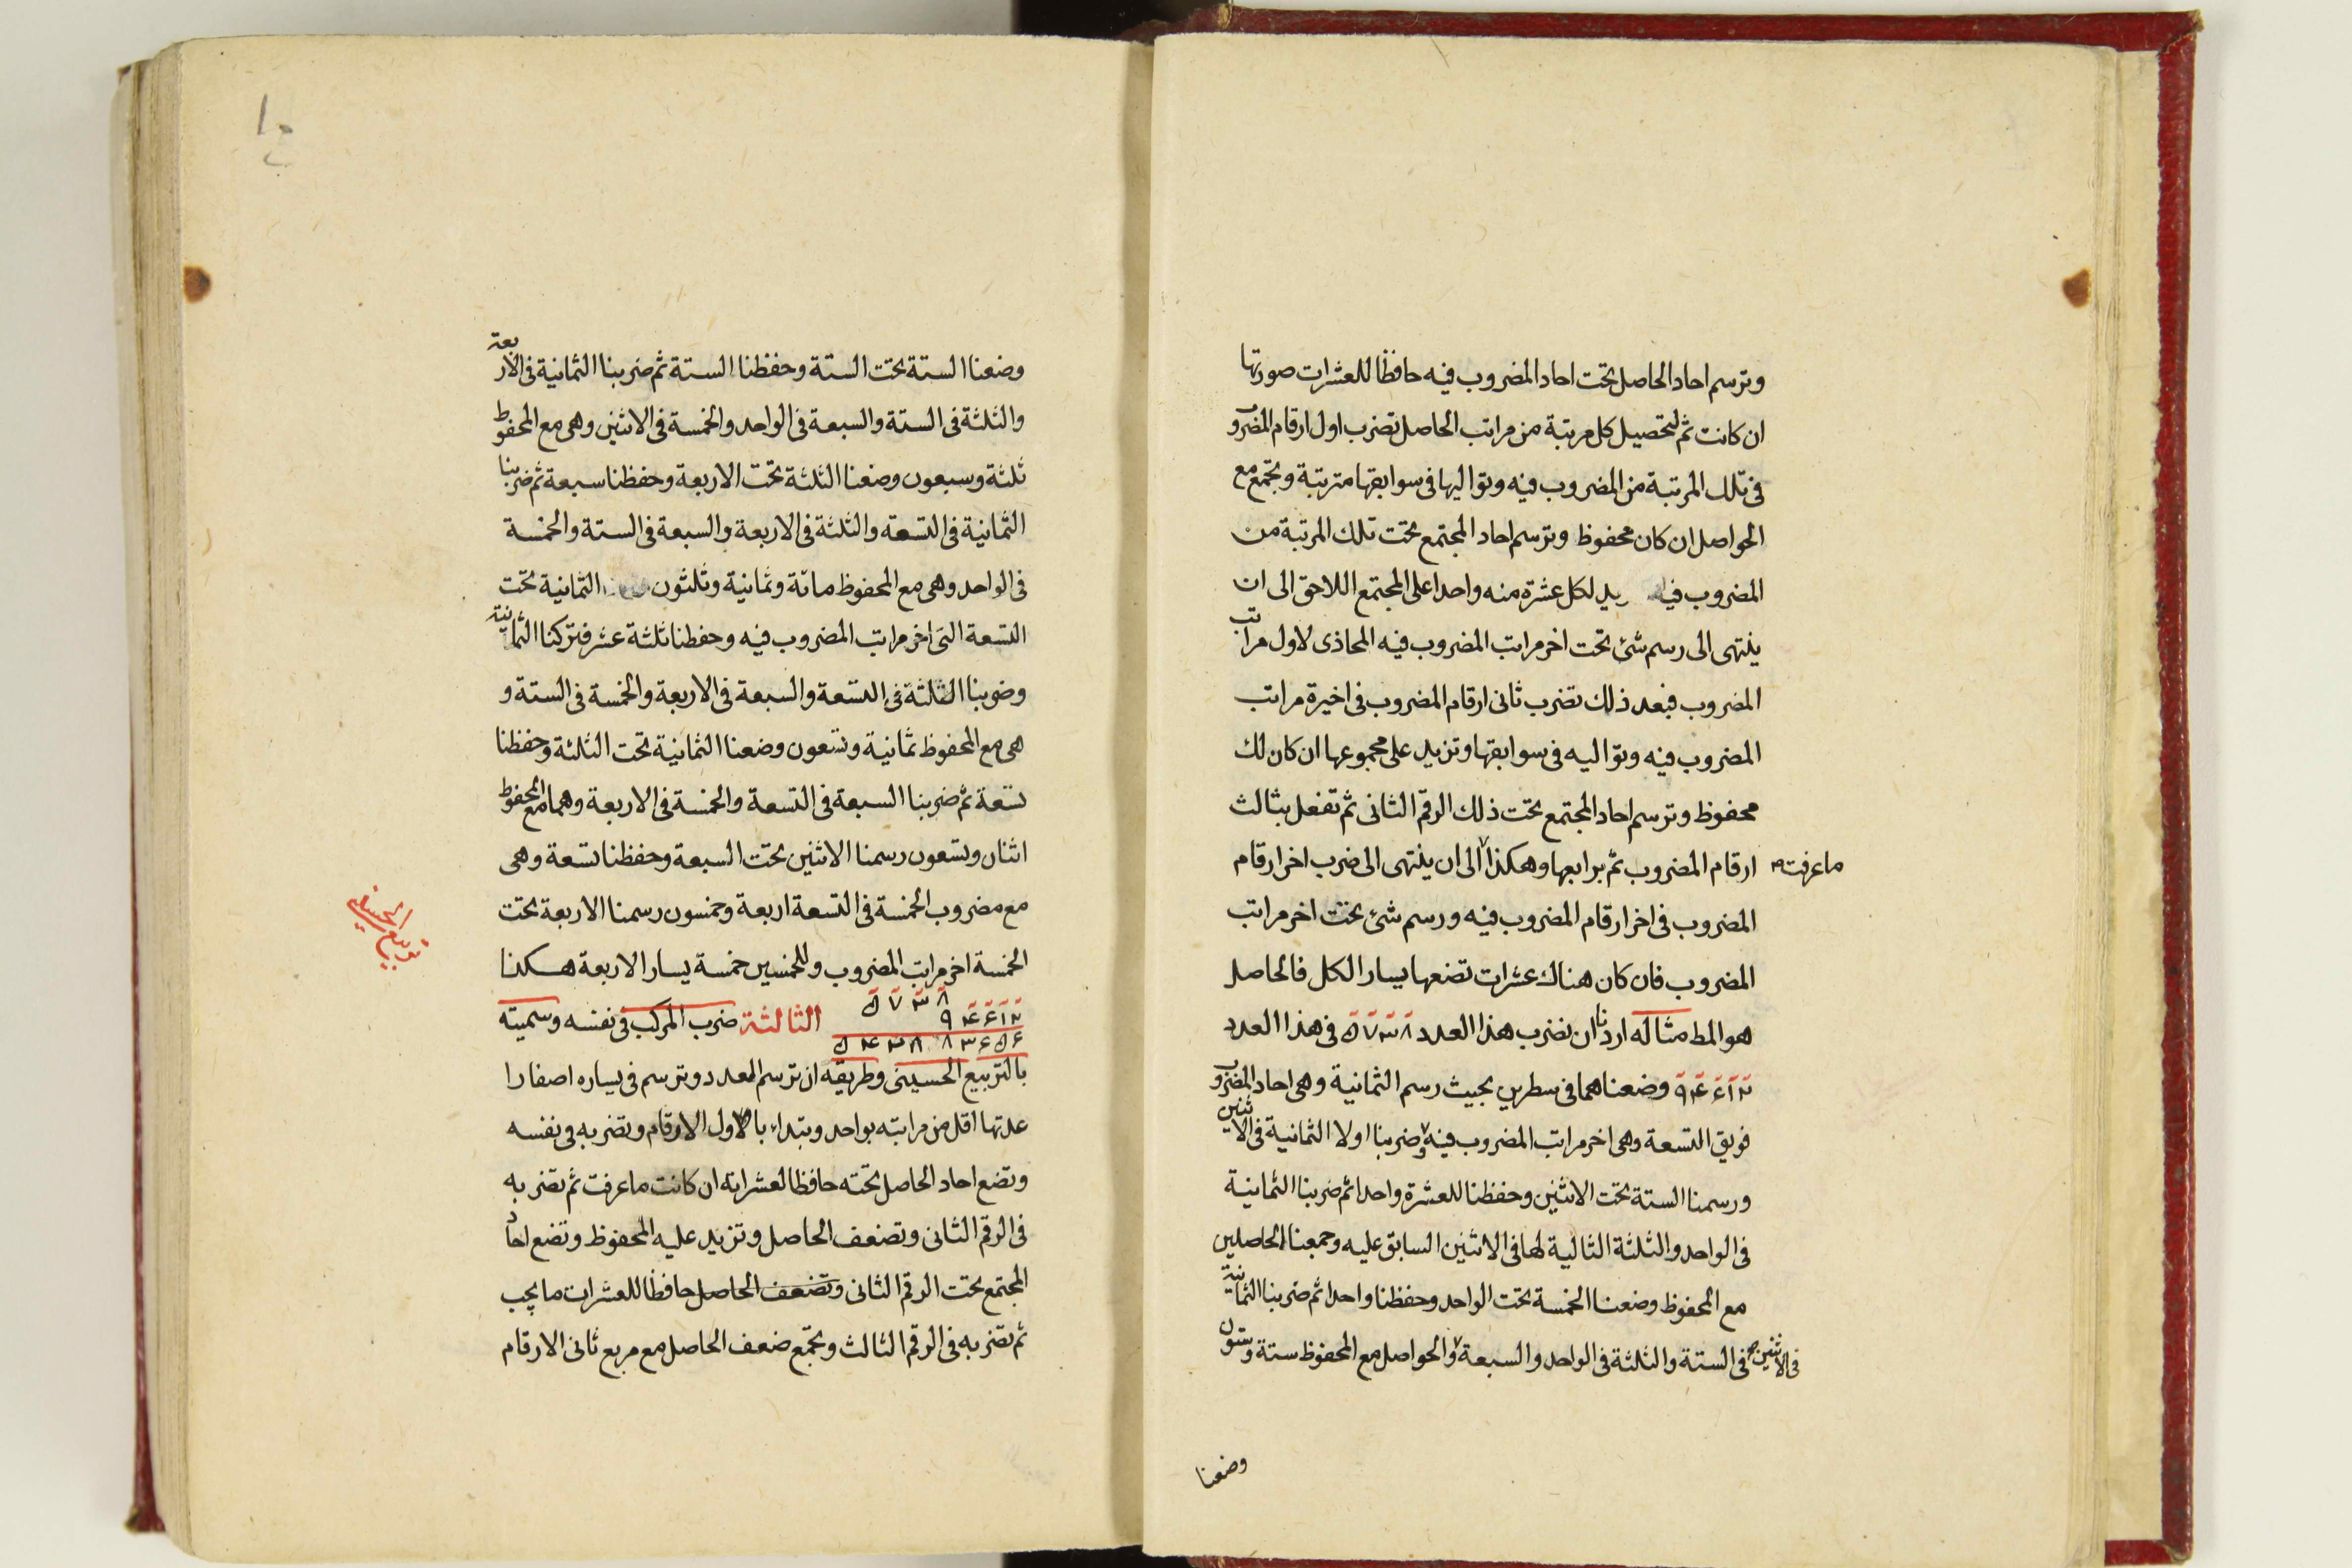 وترسم احاد الحاصل تحت احاد المضروب فيه حافظا للعشرات صورتها
ان كانت ثم لتحصيل كل مرتبة من مراتب الحاصل تضرب اول ارقام المضروب
فى تلك المرتبة من المضروب فيه وتواليها فى سوابقها مترتبة وتجمع مع
الحواصل ان كان محفوظ وترسم احاد المجتمع تحت تلك المرتبة من
المضروب فيه يد لكل عشرة منه واحدا على المجتمع اللاحق الى ان
ينتهى الى رسم شئ تحت اخر مراتب المضروب فيه المحاذى لاول مراتب
المضروب فبعد ذلك تضرب ثانى ارقام المضروب فى اخيرة مراتب
المضروب فيه وتواليه فى سوابقها وتزيد على مجموعها ان كان لك
محفوظ وترسم احاد المجتمع تحت ذلك الرقم الثانى ثم تفعل بثالث
ارقام المضروب ثم برابعها وهكذا الى ان ينتهى الى ضرب اخر ارقام
ما عرفت
المضروب فى اخر ارقام المضروب فيه ورسم شئ تحت اخر مراتب
المضروب فان كان هناك عشرات تضعها يسار الكل فالحاصل
هو المط مثاله اردنا ان نضرب هذا العدد ٥٧٣٨ فى هذا العدد
٩٤٦١٢ وضعناهما فى سطرين بحيث رسم الثمانية وهى احاد المضروب
فويق التسعة وهى اخر مراتب المضروب فيه وضربنا اولا الثمانية فى الاثنين
ورسمنا الستة تحت الاثنين وحفظنا للعشرة واحدا ثم ضربنا الثمانية
فى الواحد والثلثة التالية لها فى الاثنين السابق عليه وجمعنا الحاصلين
مع المحفوظ وضعنا الخمسة تحت الواحد وحفظنا واحدا ثم ضربنا الثمانية
فى الستة والثلثة فى الواحد والسبعة والحواصل مع المحفوظ ستة وستون
فى الاثنين
وضعنا
١٠
ب
وضعنا الستة تحت الستة وحفظنا الستة ثم ضربنا الثمانية فى الاربعة
والثلثة فى الستة والسبعة فى الواحد والخمسة فى الاثنين وهى مع المحفوظ
ثلثة وسبعون وضعنا الثلثة تحت الاربعة وحفظنا سبعة ثم ضربنا
الثمانية فى التسعة والثلثة فى الاربعة والسبعة فى الستة والخمسة
فى الواحد وهى مع المحفوظ مائة وثمانية وثلثون الثمانية تحت
التسعة التى اخر مراتب المضروب فيه وحفظنا ثلثة عشر فتركنا الثمانية
وضربنا الثلثة فى التسعة والسبعة فى الاربعة والخمسة فى الستة و
هى مع المحفوظ ثمانية وتسعون وضعنا الثمانية تحت الثلثة وحفظنا
تسعة ثم ضربنا السبعة فى التسعة والخمسة فى الاربعة وهما مع المحفوظ
اثنان وتسعون رسمنا الاثنين تحت السبعة وحفظنا تسعة وهى
مع مضروب الخمسة فى التسعة اربعة وخمسون رسمنا الاربعة تحت
الخمسة اخر مراتب المضروب وللخمسين خمسة يسار الاربعة هكذا
٥٧٣٨
٩٤٦١٢
الثالثة ضرب المركب فى نفسه وسميته
تربيع الحسينى
بالتربيع الحسينى وطريقه ان ترسم العدد وترسم فى يساره اصفارا
عدتها اقل من مراتبه بواحد وتبتداء باول الارقام وتضربه فى نفسه
وتضع احاد الحاصل تحته حافظا لعشراته ان كانت ما عرفت ثم تضربه
فى الرقم الثانى وتضعف الحاصل وتزيد عليه المحفوظ وتضع احاد
المجتمع تحت الرقم الثانى وتضعف الحاصل حافظا للعشرات ما يجب
ثم تضربه فى الرقم الثالث وتجمع ضعف الحاصل مع مربع ثانى الارقام